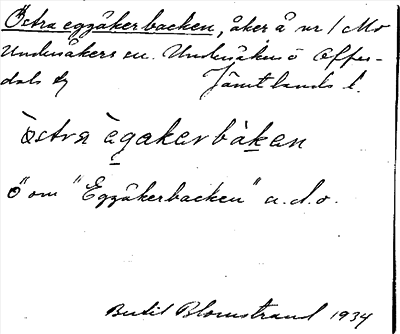 Östra eggåkerbacken, åker å nr 1 Mo
Undersåkers sn. Undersåkers o Offer-
dals tg Jämtlands l.
östra ègakerbàkan
ö om "Eggåkerbacken" a.d.o.
Bertil Blomstrand 1934